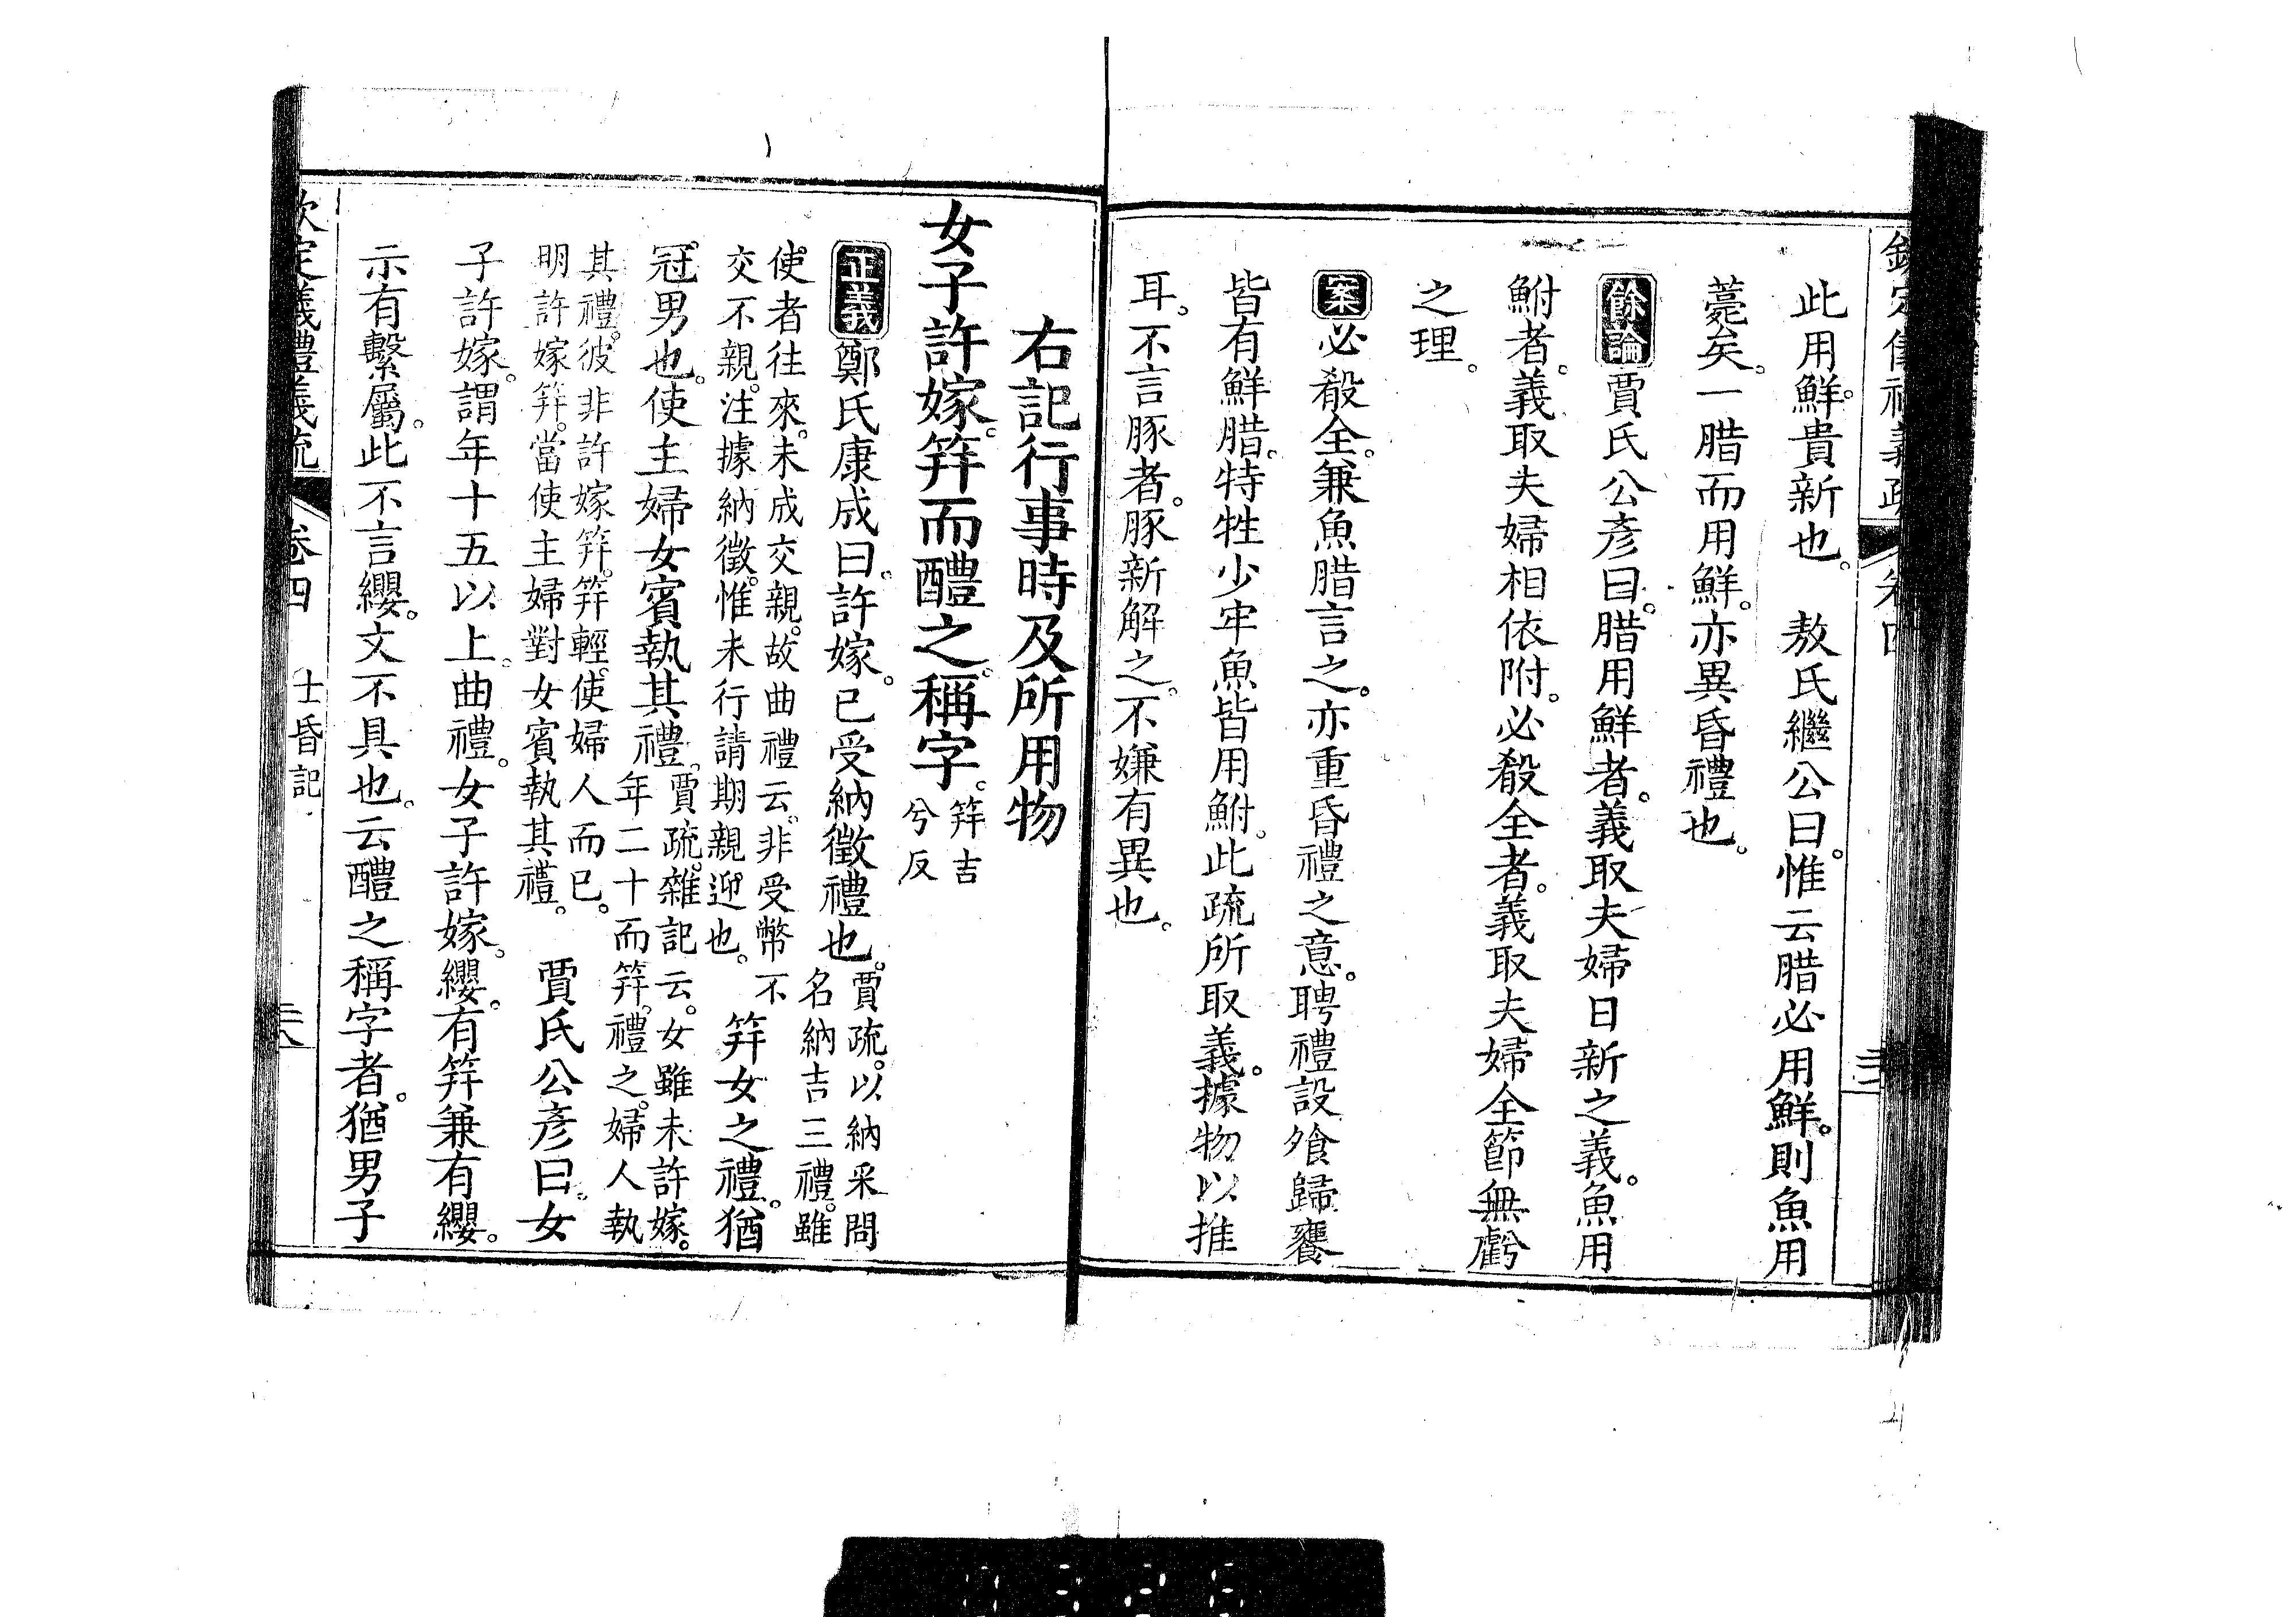 此用鮮。貴新也。　敖氏繼公曰。惟云腊必用鮮。則魚用
薧矣。一腊而用鮮。亦異昏禮也。
餘論賈氏公彥曰。腊用鮮者。義取夫婦日新之義。魚用
鮒者。義取夫婦相依附。必殽全者。義取夫婦全節無虧
之理。
案必殽全。兼魚腊言之。亦重昏禮之意。聘禮設飧歸饔
皆有鮮腊。特牲少牢魚皆用鮒。此疏所取義。據物以推
耳。不言豚者。豚新解之。不嫌有異也。
右記行事時及所用物
女子許嫁。笄而醴之。稱字。笄吉
兮反
正義鄭氏康成曰。許嫁。已受納徵禮也。賈疏。以納采問
名納吉三禮。雖
使者往來。未成交親。故曲禮云。非受幣不
交不親。注據納徵。惟未行請期親迎也。笄女之禮。猶
冠男也。使主婦女賓執其禮。賈疏。雜記云。女雖未許嫁。
年二十而笄。禮之。婦人執
其禮。彼非許嫁笄。笄輕。使婦人而已。
明許嫁笄。當使主婦對女賓執其禮。　賈氏公彥曰。女
子許嫁。謂年十五以上。曲禮。女子許嫁。纓。有笄兼有纓。
示有繫屬。此不言纓。文不具也。云醴之稱字者。猶男子
欽定義禮義疏　卷四　士昏記